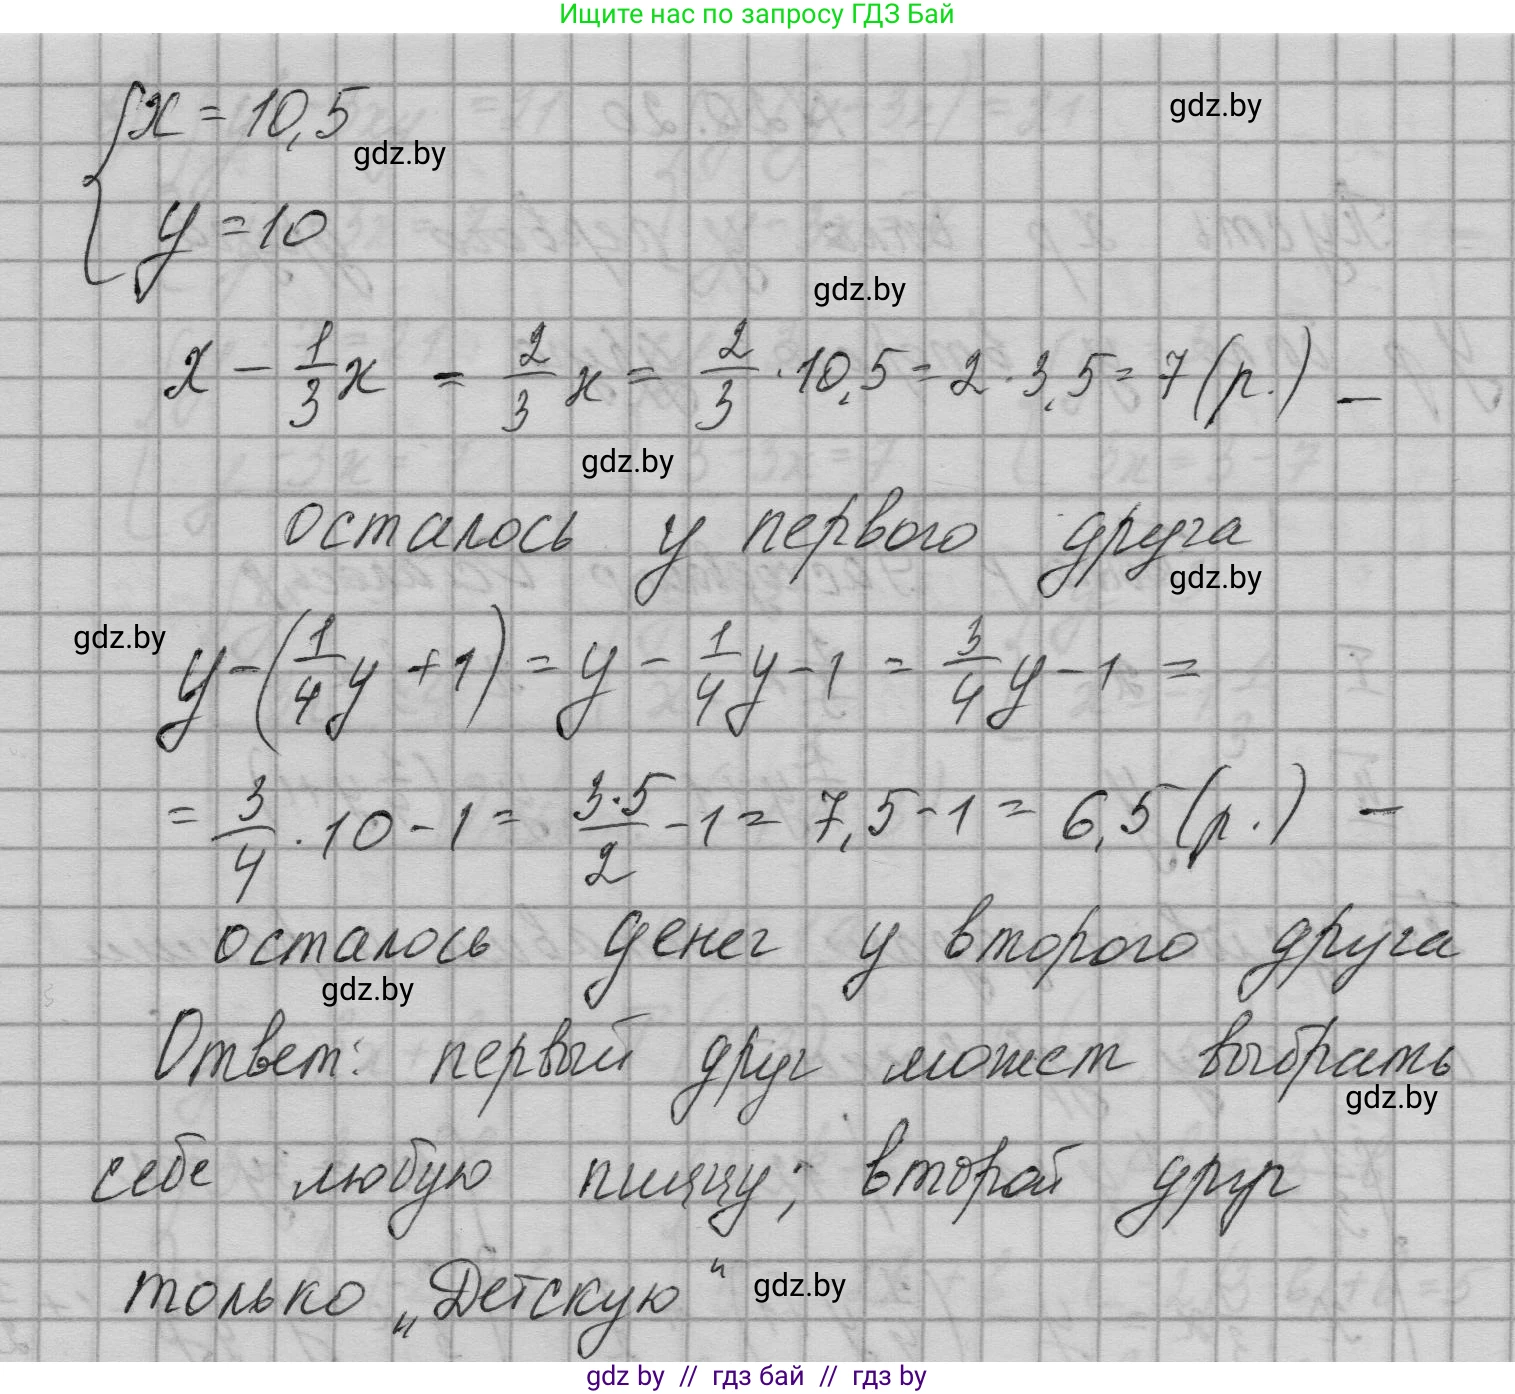 Ищите нас по запросу ГДЗ Бай
{ x = 10,5
gdz.by
gdz.by
y = 10
gdz.by
x - 1/3 x = 2/3 x = 2/3 · 10,5 = 2 · 3,5 = 7 (р.) –
gdz.by
осталось у первого друга
gdz.by
gdz.by
y - (1/4 y + 1) = y - 1/4 y - 1 = 3/4 y - 1 =
= 3/4 · 10 - 1 = 3·5/2 - 1 = 7,5 - 1 = 6,5 (р.) –
осталось денег у второго друга
gdz.by
Ответ: первый друг может выбрать
gdz.by
себе любую пиццу; второй друг
только „Детскую"
gdz.by
gdz by // гдз бай // гдз by